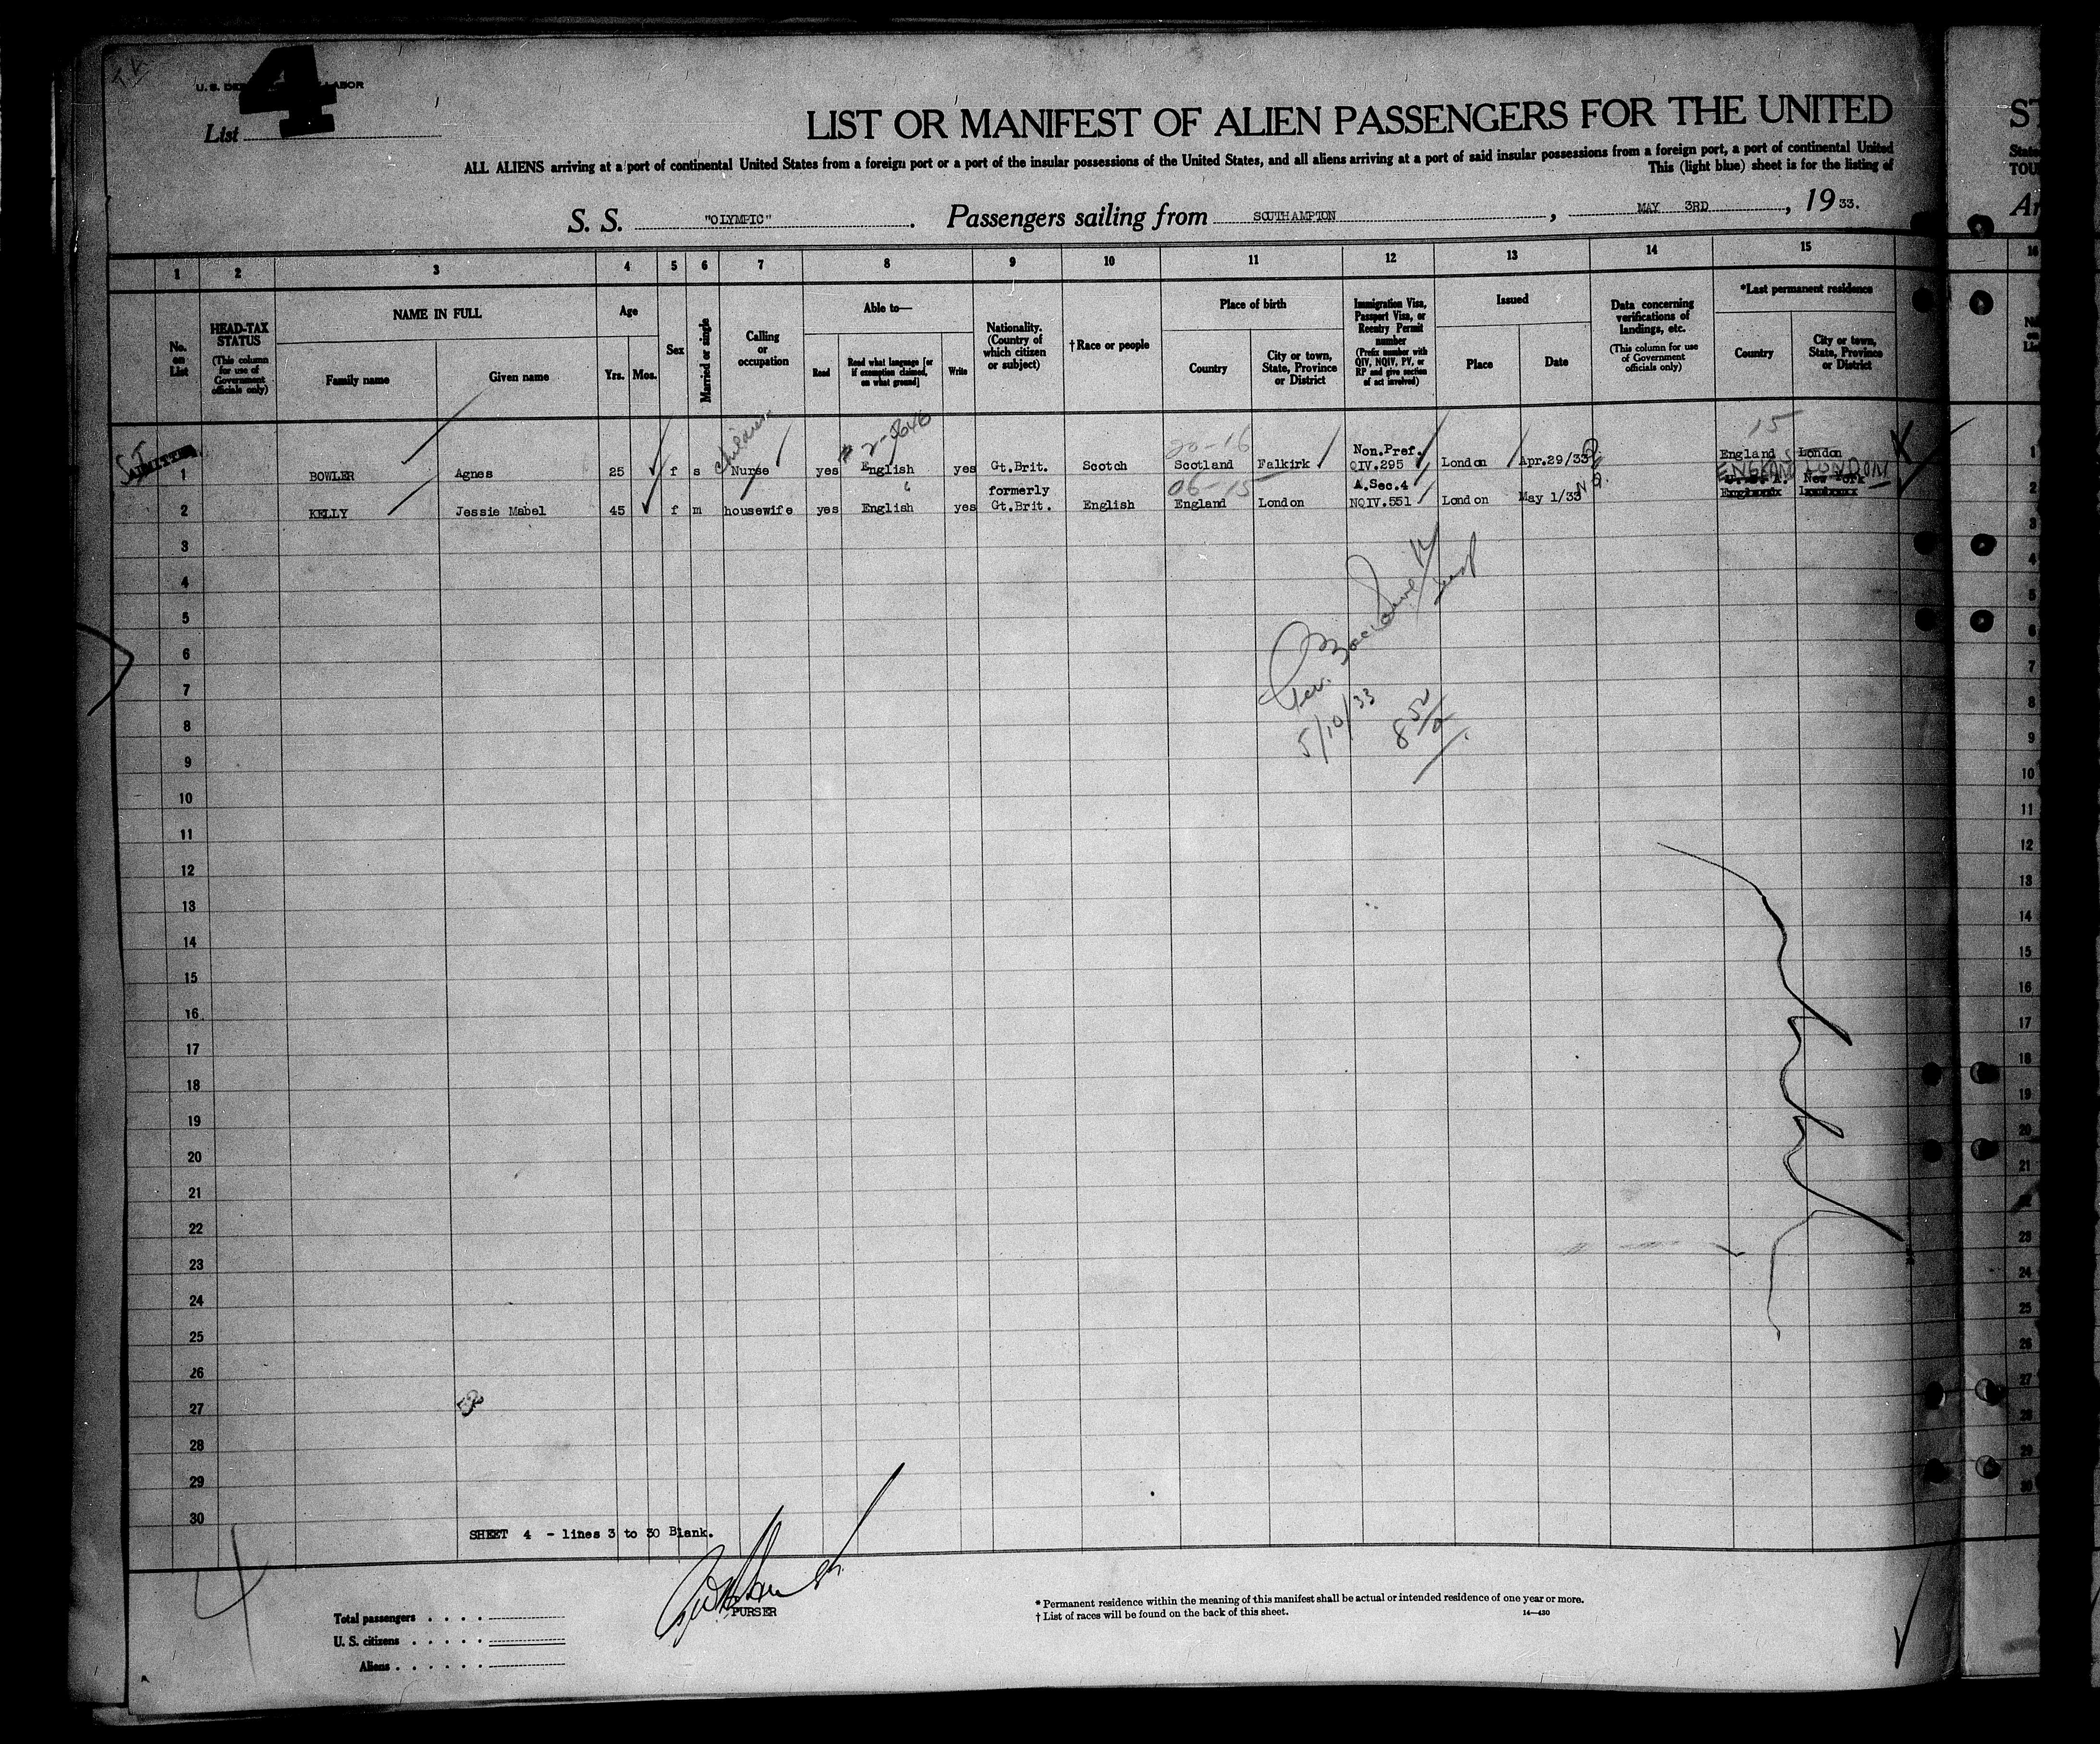 U. S. DE LABOR
4
List
LIST OR MANIFEST OF ALIEN PASSENGERS FOR THE UNITED
ALL ALIENS arriving at a port of continental United States from a foreign port or a port of the insular possessions of the United States, and all aliens arriving at a port of said insular possessions from a foreign port, a port of continental United
This (light blue) sheet is for the listing of
S. S. "OLYMPIC". Passengers sailing from SOUTHAMPTON, MAY 3RD, 19 33.
1 2 3 4 5 6 7 8 9 10 11 12 13 14 15
No. on List
HEAD-TAX STATUS
(This column for use of Government officials only)
NAME IN FULL
Family name
Given name
Age
Yrs. Mos.
Sex
Married or single
Calling or occupation
Able to—
Read
Read what language [or if exemption claimed, on what ground]
Write
Nationality. (Country of which citizen or subject)
†Race or people
Place of birth
Country
City or town, State, Province or District
Immigration Visa, Passport Visa, or Reentry Permit number
(Prefix number with QIV, NQIV, PV, or RP and give section of act involved)
Issued
Place
Date
Data concerning verifications of landings, etc.
(This column for use of Government officials only)
*Last permanent residence
Country
City or town, State, Province or District
ADMITTED
Children
20-16
15
Non.Pref.
1 BOWLER Agnes 25 f s Nurse yes English yes Gt.Brit. Scotch Scotland Falkirk QIV.295 London Apr.29/33 England London
06-15
ENGLAND LONDON
formerly A.Sec.4 U. S. A. New York
2 KELLY Jessie Mabel 45 f m housewife yes English yes Gt.Brit. English England London NQIV.551 London May 1/33
3
4
5
6
7
5/10/33
8
9
10
11
12
13
14
15
16
17
18
19
20
21
22
23
24
25
26
27
28
29
30
SHEET 4 - lines 3 to 30 Blank.
PURSER
Total passengers
U. S. citizens
Aliens
* Permanent residence within the meaning of this manifest shall be actual or intended residence of one year or more.
† List of races will be found on the back of this sheet.
14—430